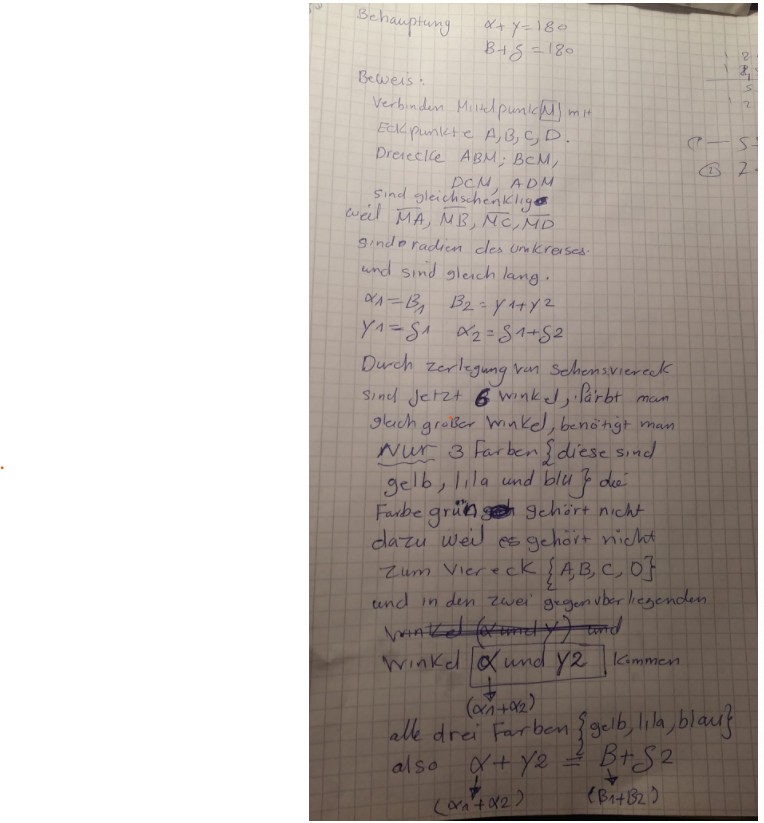 Behauptung α+γ=180
B+δ=180
Beweis:
Verbinden Mittelpunkt M mit
Eckpunkte A,B,C,D.
Dreiecke ABM; BCM,
DCM, ADM
sind gleichschenklig
weil MA, MB, MC, MD
sind radien des umkreises.
und sind gleich lang.
α1=B1 B2=γ1+γ2
γ1=δ1 α2=δ1+δ2
Durch zerlegung von Sehensviereck
sind Jetzt 6 winkel, färbt man
gleich großer winkel, benötigt man
Nur 3 Farben {diese sind
gelb, lila und blu} die
Farbe grün gehört nicht
dazu weil es gehört nicht
zum Viereck {A,B,C,D}
und in den zwei gegenüberliegenden
Winkel (α und γ) und
Winkel α und γ2 kommen
(α1+α2)
alle drei Farben {gelb, lila, blau}
also α+γ2 = B+δ2
(α1+α2) (B1+B2)